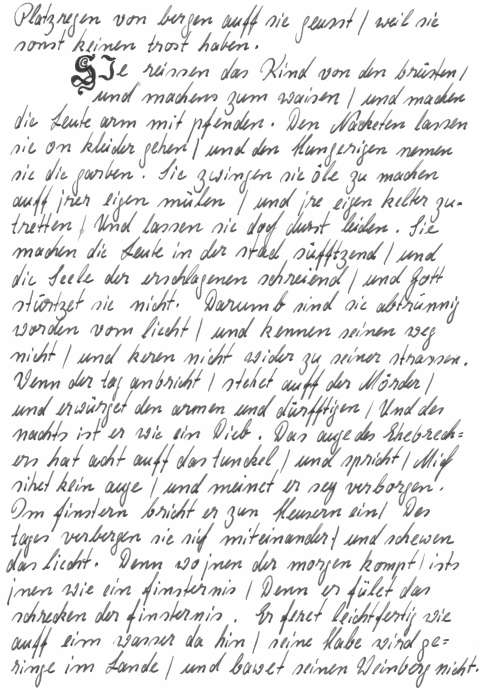 Platzregen von bergen auff sie geusst / weil sie
sonst keinen trost haben.
SJe reissen das Kind von den brüsten /
und machens zum waisen / und machen
die Leute arm mit pfenden. Den Nacketen lassen
sie on kleider gehen / und den Hungerigen nemen
sie die garben. Sie zwingen sie öle zu machen
auff jrer eigen mülen / und jre eigen kelter zu-
tretten / Und lassen sie doch durst leiden. Sie
machen die Leute in der stad süfftzend / und
die Seele der erschlagenen schreiend / und Gott
stürtzet sie nicht. Darumb sind sie abtrünnig
worden vom liecht / und kennen seinen weg
nicht / und keren nicht wider zu seiner strassen.
Wenn der tag anbricht / stehet auff der Mörder /
und erwürget den armen und dürfftigen / Und des
nachts ist er wie ein Dieb. Das auge des Ehebrech=
ers hat acht auff das tunckel / und spricht / Mich
sihet kein auge / und meinet er sey verborgen.
Im finstern bricht er zun Heusern ein / Des
tages verbergen sie sich miteinander / und schewen
das liecht. Denn wo jnen der morgen kompt / ists
jnen wie ein finsternis / Denn er fület das
schrecken der finsternis. Er feret leichtfertig wie
auff eim wasser da hin / seine Habe wird ge=
ringe im Lande / und bawet seinen Weinberg nicht.